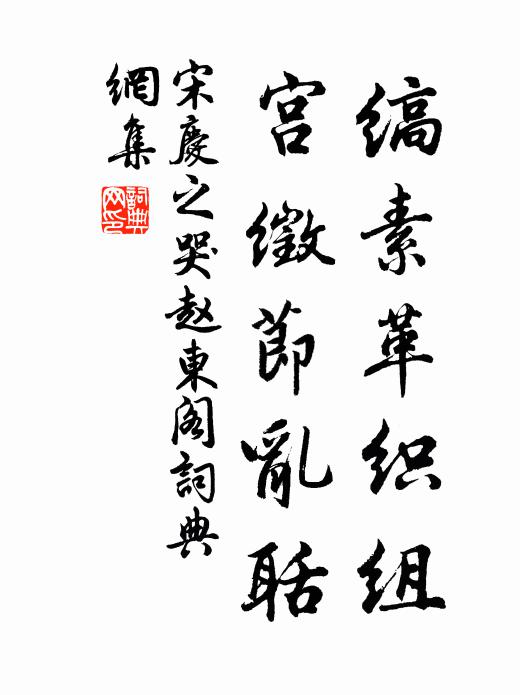 缟素革织组
宫徵节亂聒
宋慶之哭赵東阁詞典
網集
詞典网印